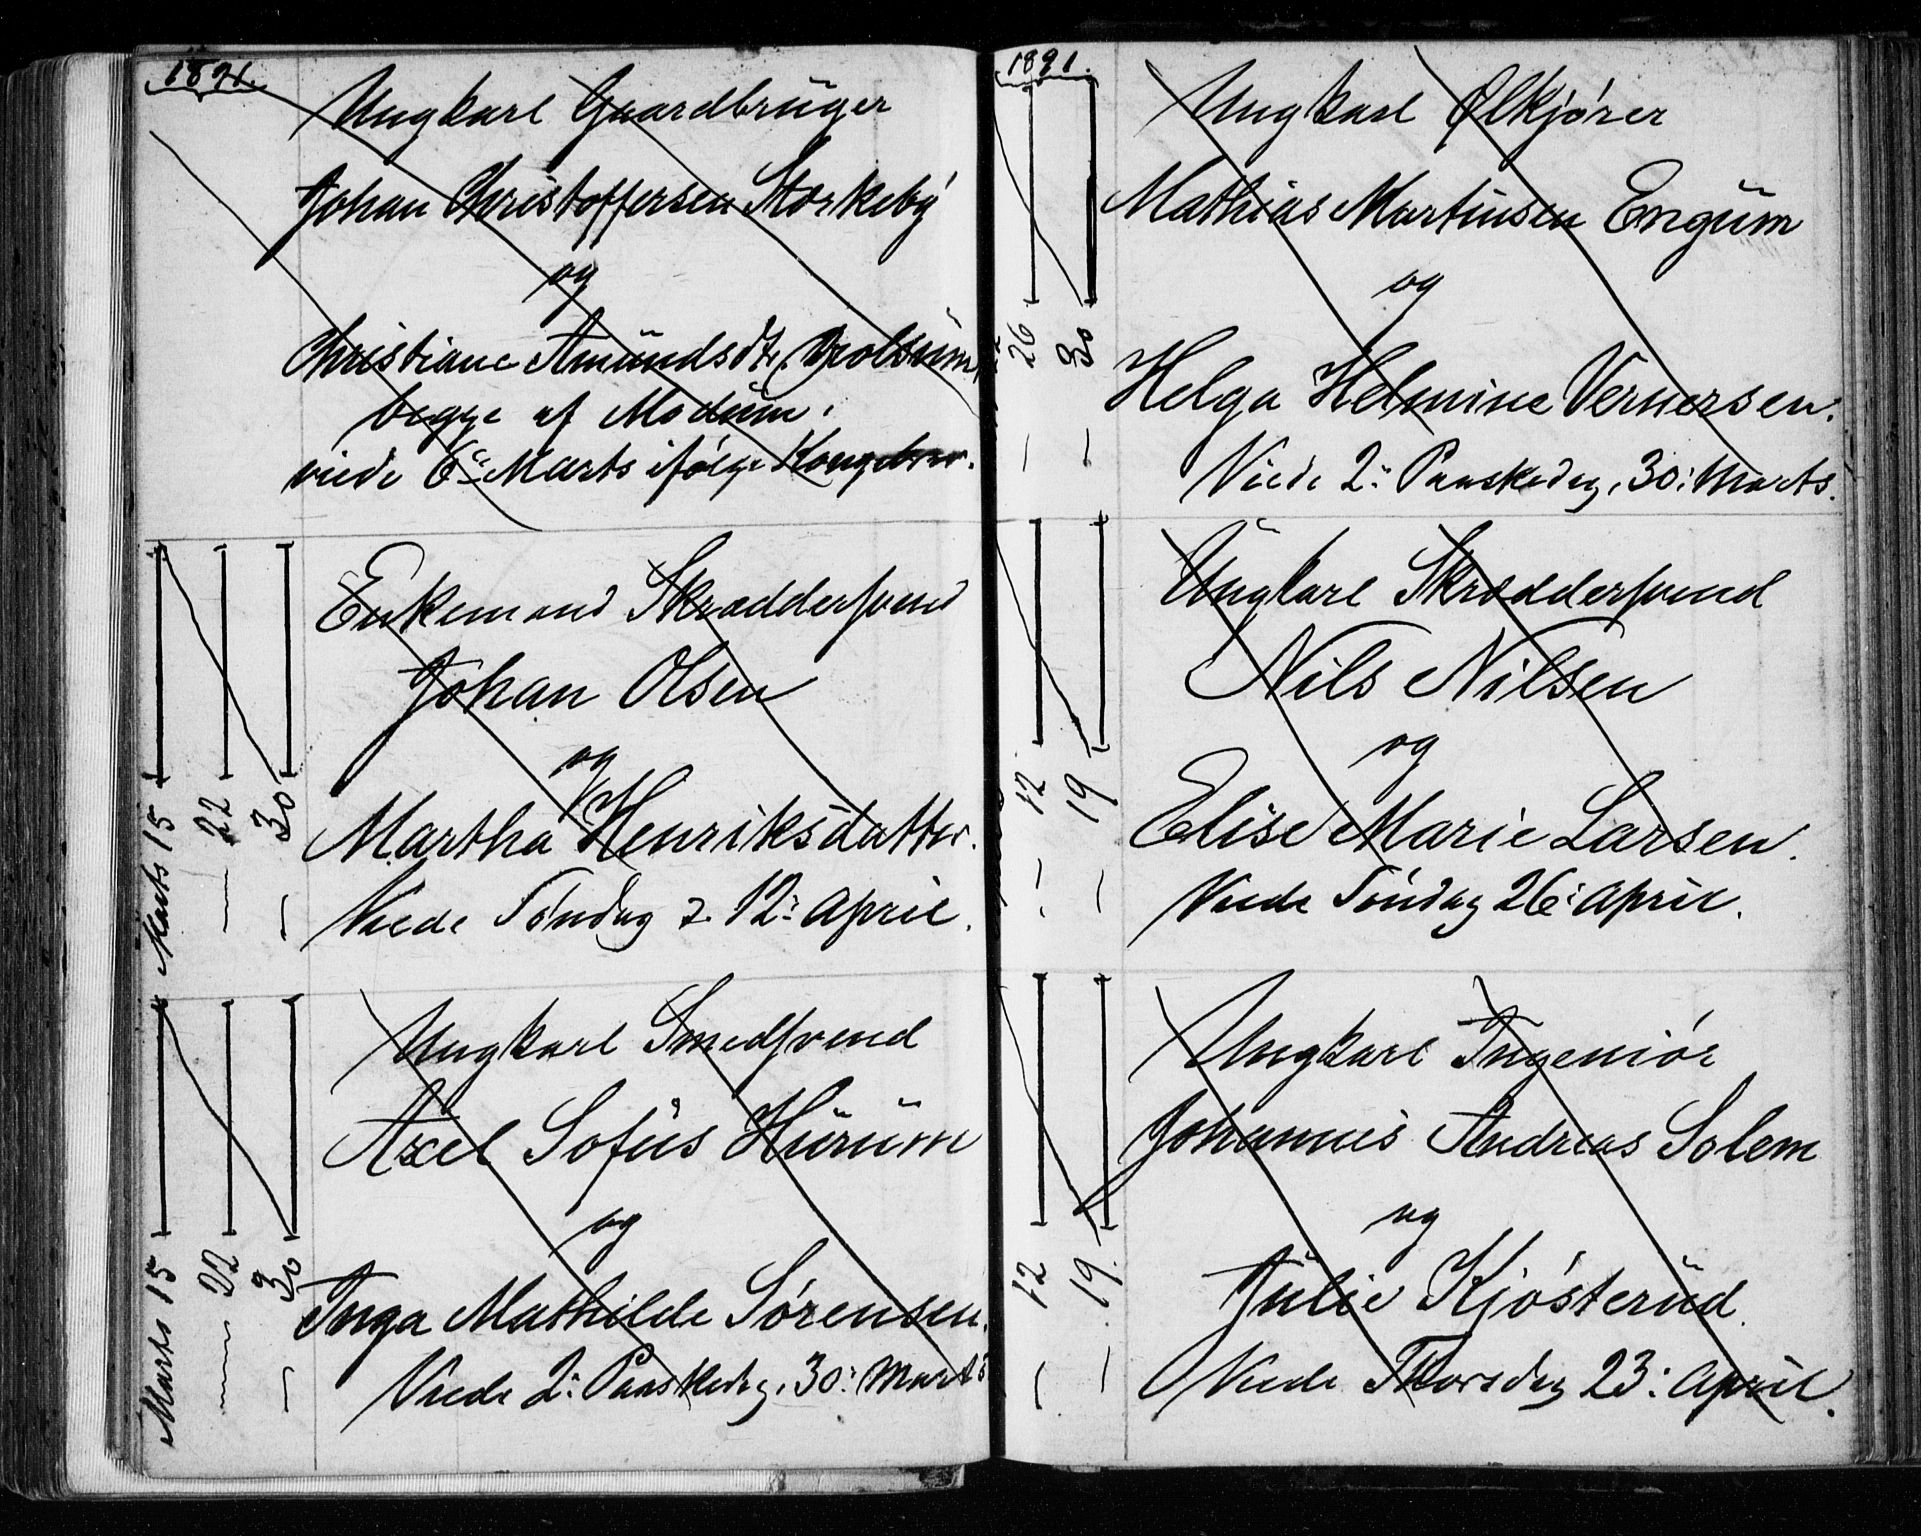 1891.
Ungkarl Gaardbrüger
Johan Christoffersen Størkebÿ
og
Christiane Amündsdtr.
begge af Modüm.
viede 6te Marts ifølge Kongebrev.
Marts 15
— 22
— 30
Enkemand Skrædersvend
Johan Olsen
og
Martha Henriksdatter.
Viede Søndag 12: April.
Marts 15
— 22
— 30
Ungkarl Smedsvend
Axel Sofüs Hürüm
og
Inga Mathilde Sørensen.
Viede 2: Paaskedag, 30: Marts
1891.
26
30
Ungkarl Ølkjører
Mathias Martinsen Engüm
og
Helga Helmine Vernersen.
Viede 2: Paaskedag, 30: Marts.
— 12
— 19
Üngkarl Skræddersvend
Nils Nilsen
og
Elise Marie Larsen.
Viede Søndag 26: April.
— 12
— 19.
Ungkarl Ingeniør
Johannes Andreas Solem
og
Jülie Kjøsterüd.
Viede Thorsdag 23: April.